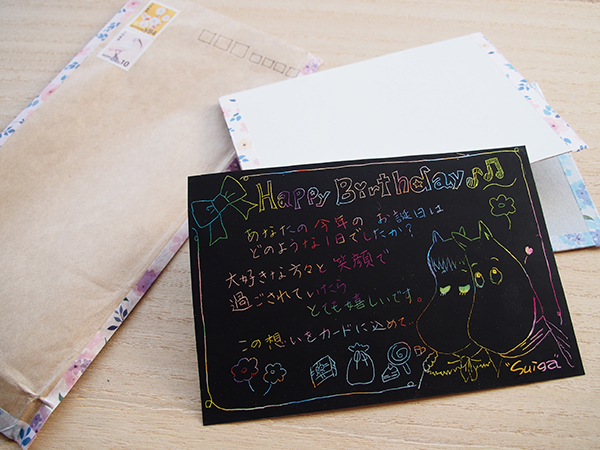 Happy Birthday
あなたの今年のお誕生日は
どのような1日でしたか?
大好きな方々と笑顔で
過ごされていたら
とても嬉しいです。
この想いをカードに込めて…
"Suiga"